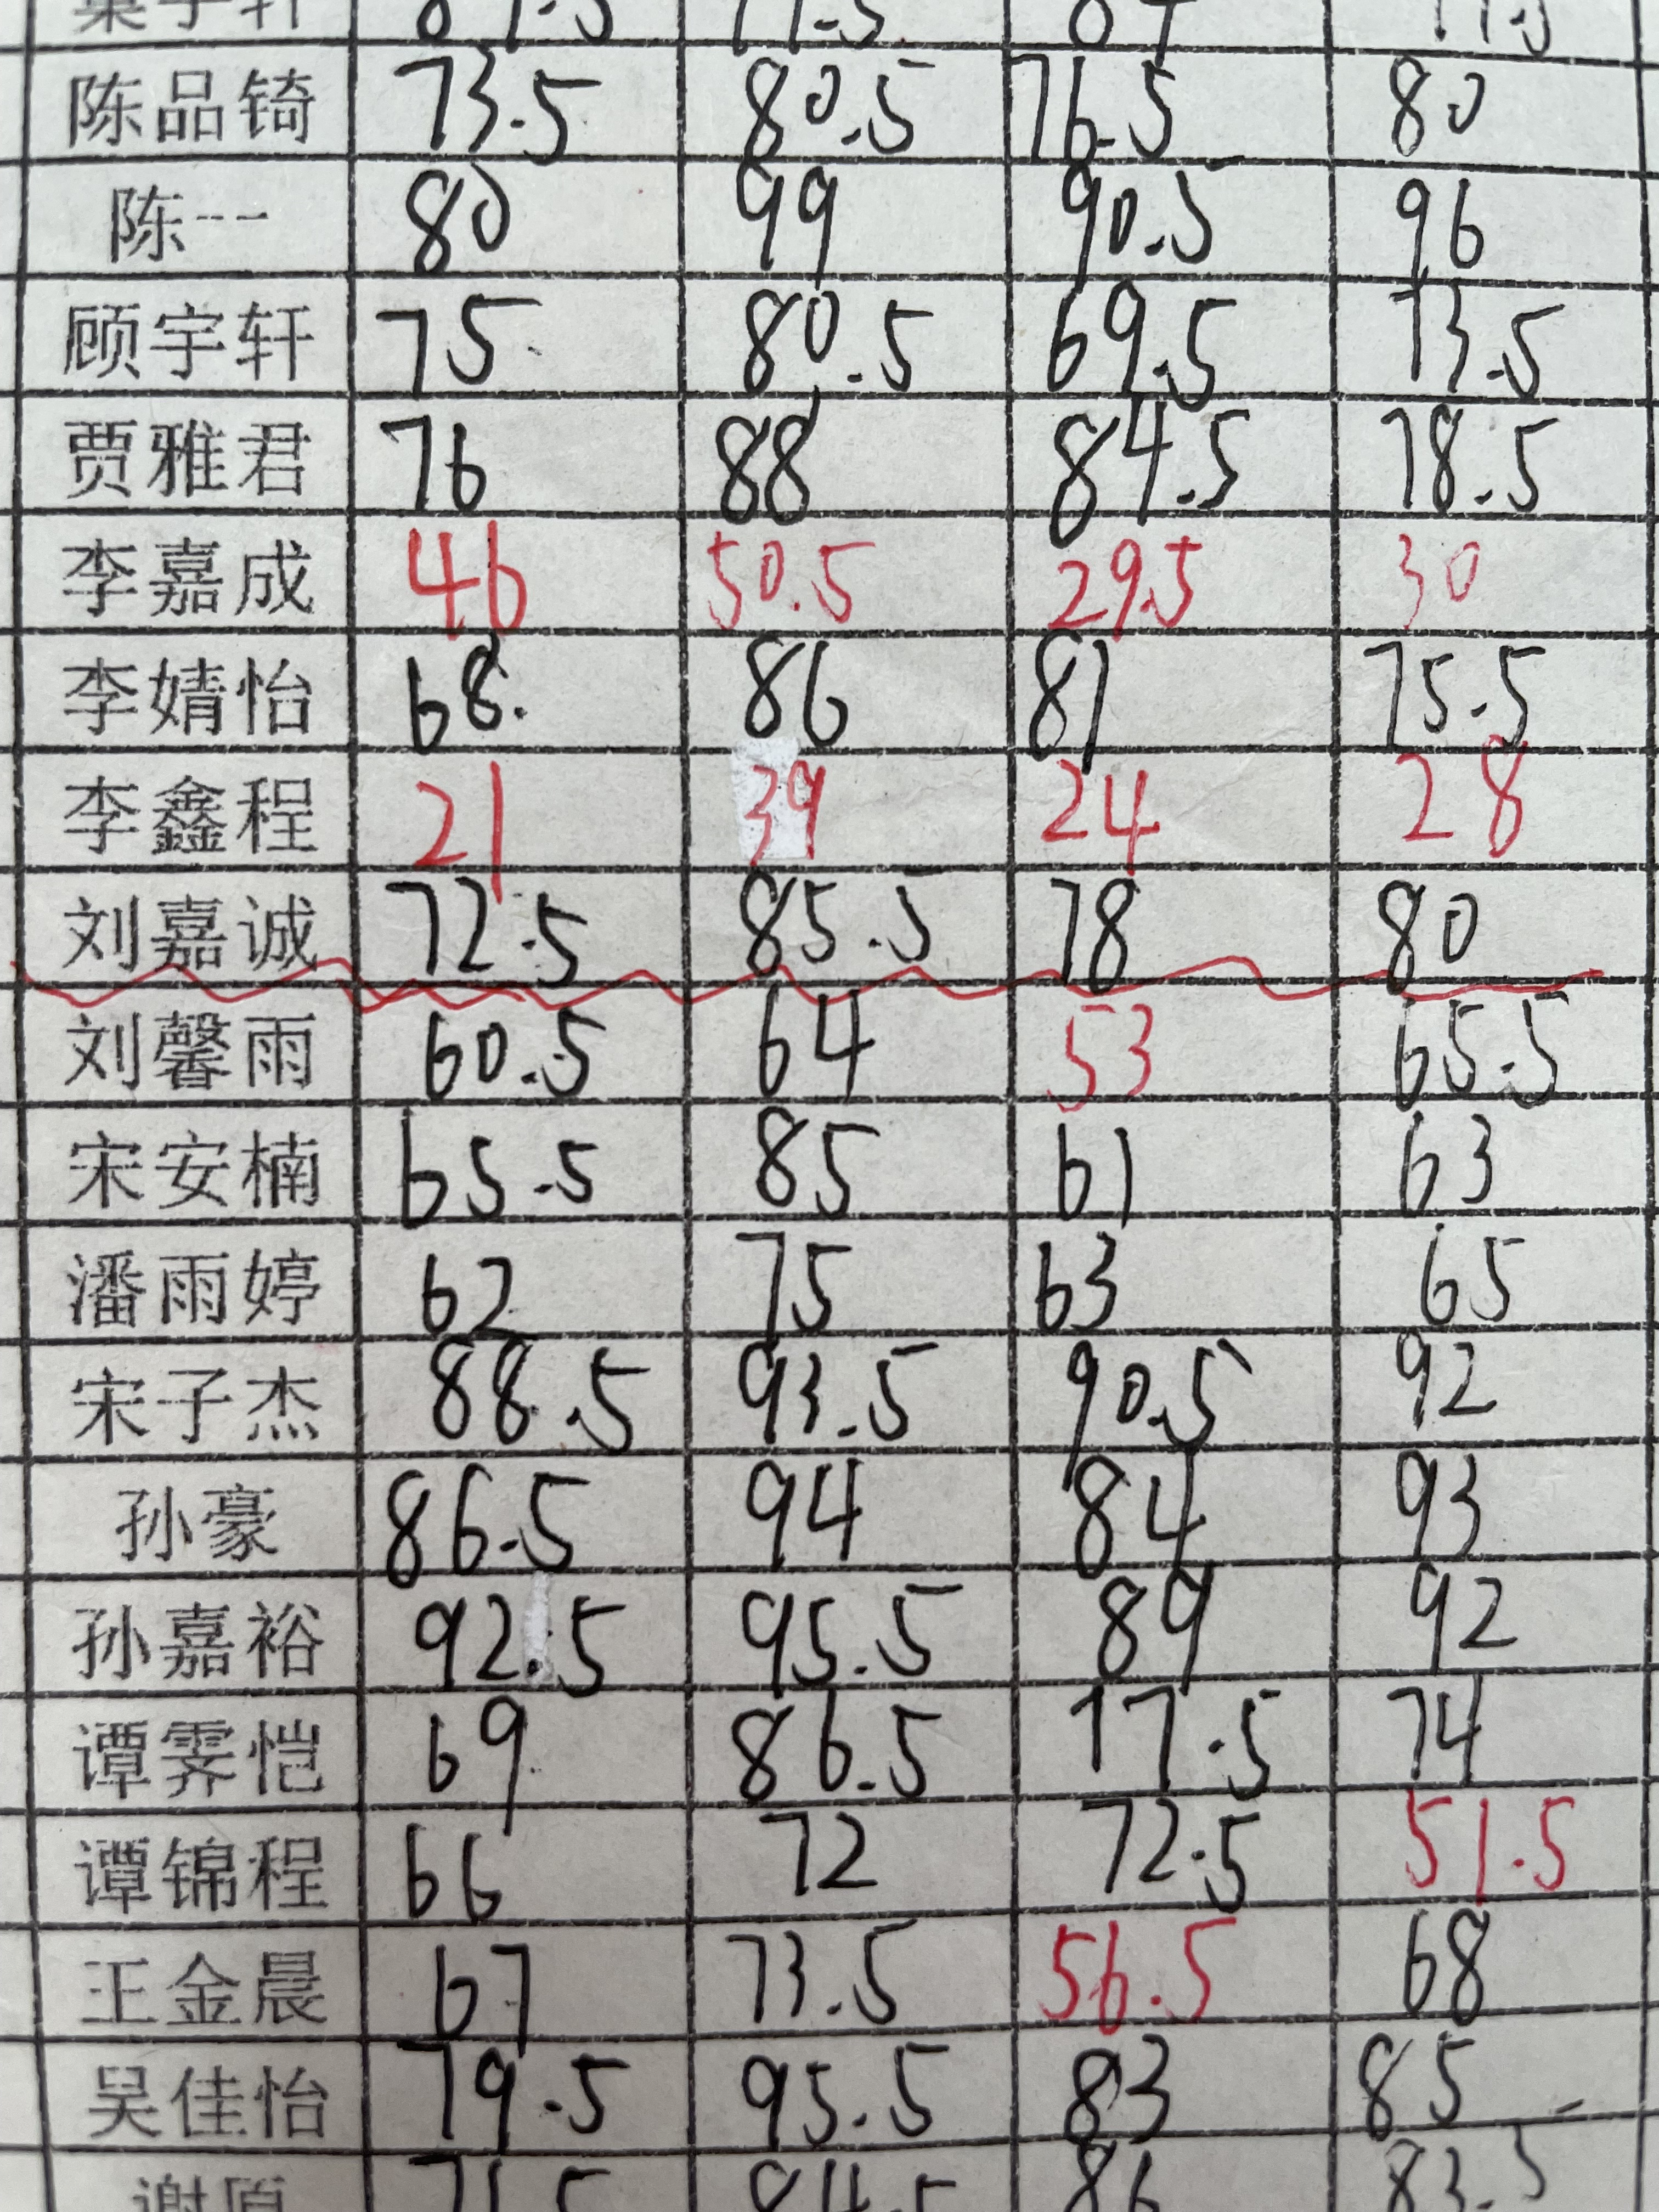 陈品锜 73.5 80.5 76.5 80
陈一一 80 99 90.5 96
顾宇轩 75 80.5 69.5 73.5
贾雅君 76 88 84.5 78.5
李嘉成 46 50.5 29.5 30
李婧怡 68 86 81 75.5
李鑫程 21 39 24 28
刘嘉诚 72.5 85.5 78 80
刘馨雨 60.5 64 53 65.5
宋安楠 65.5 85 61 63
潘雨婷 62 75 63 65
宋子杰 88.5 93.5 90.5 92
孙豪 86.5 94 84 93
孙嘉裕 92.5 95.5 89 92
谭霁恺 69 86.5 77.5 74
谭锦程 66 72 72.5 51.5
王金晨 67 73.5 56.5 68
吴佳怡 79.5 95.5 83 85
84.5 86 83.5